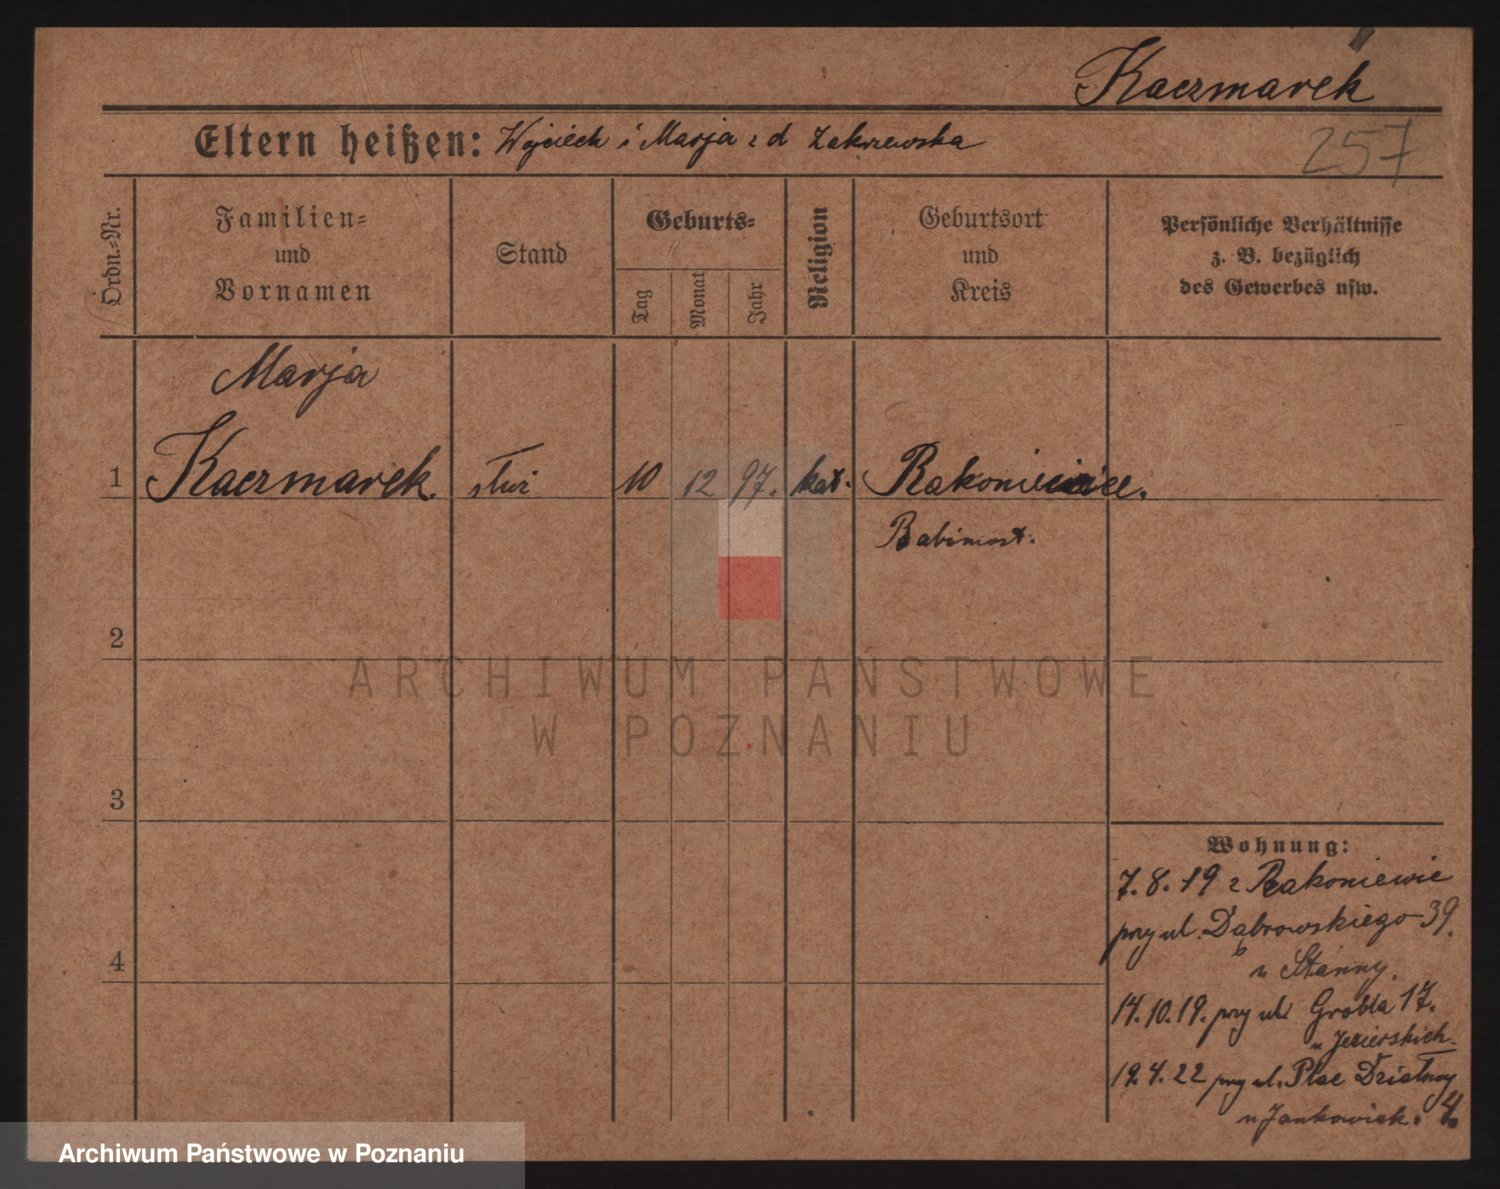 Kaczmarek
Eltern heißen: Wojciech i Marja z d Zakrzewska
257
Ordn.-Nr.
Familien-
und
Vornamen
Stand
Geburts-
Tag
Monat
Jahr
Religion
Geburtsort
und
Kreis
Persönliche Verhältnisse
z. B. bezüglich
des Gewerbes usw.
Marja
1 Kaczmarek. służ 10 12 97. kat. Rakoniewice.
Babimost.
2
ARCHIWUM PAŃSTWOWE
W POZNANIU
3
Wohnung:
7.8.19 z Rakoniewic
przy ul. Dąbrowskiego 39.
u Stanny.
4
14.10.19. przy ul. Grobla 17.
u Jezierskich.
19.4.22 przy ul. Plac Działowy
u Jankowiak. 4.
Archiwum Państwowe w Poznaniu